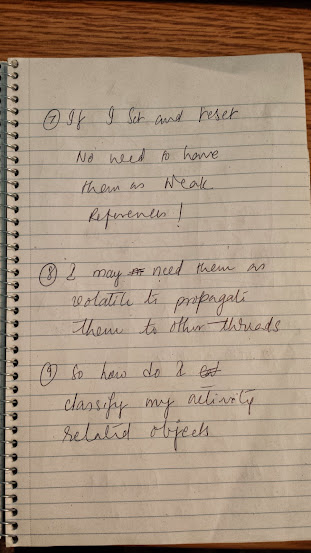 ⑦ If I Set and reset
No need to have
them as Weak
References!
⑧ I may need them as
volatile to propagate
them to other threads
⑨ So how do I
classify my activity
related objects